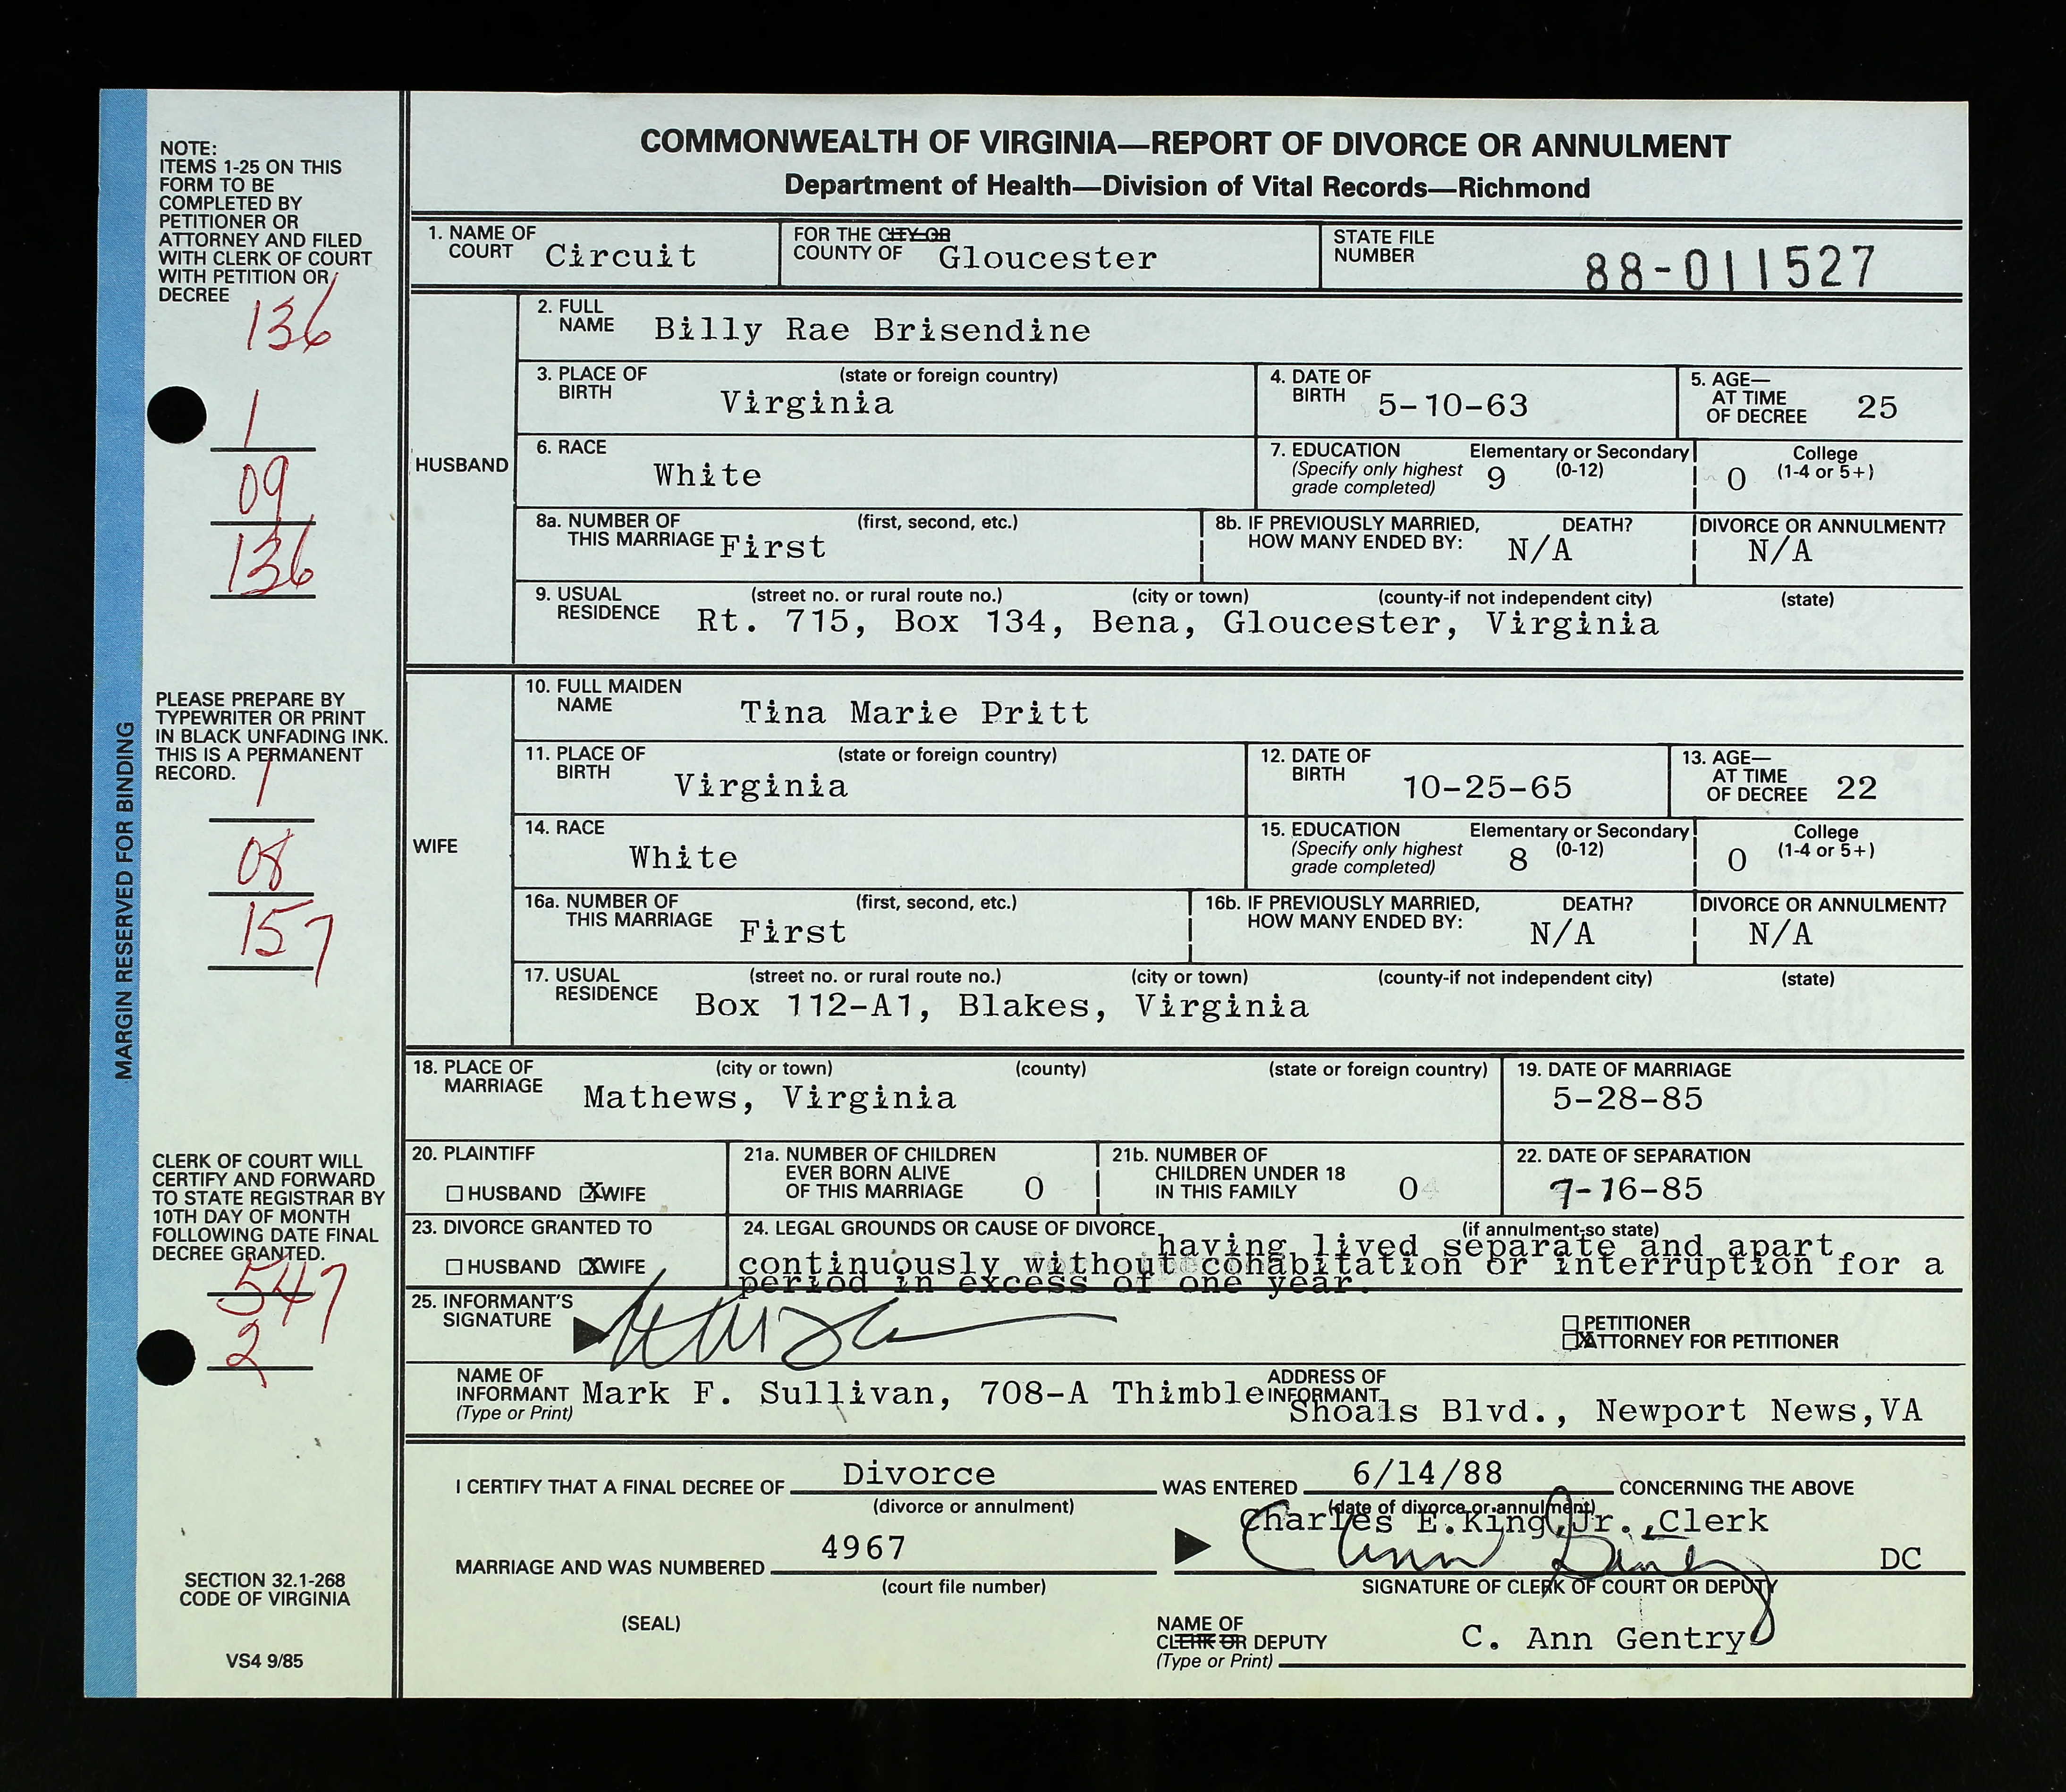 COMMONWEALTH OF VIRGINIA—REPORT OF DIVORCE OR ANNULMENT
Department of Health—Division of Vital Records—Richmond
NOTE:
ITEMS 1-25 ON THIS
FORM TO BE
COMPLETED BY
PETITIONER OR
ATTORNEY AND FILED
WITH CLERK OF COURT
WITH PETITION OR
DECREE
136
1
09
136
PLEASE PREPARE BY
TYPEWRITER OR PRINT
IN BLACK UNFADING INK.
THIS IS A PERMANENT
RECORD.
1
08
157
CLERK OF COURT WILL
CERTIFY AND FORWARD
TO STATE REGISTRAR BY
10TH DAY OF MONTH
FOLLOWING DATE FINAL
DECREE GRANTED.
547
2
SECTION 32.1-268
CODE OF VIRGINIA
VS4 9/85
MARGIN RESERVED FOR BINDING
1. NAME OF COURT Circuit
FOR THE CITY OR COUNTY OF Gloucester
STATE FILE NUMBER 88-011527
HUSBAND
2. FULL NAME Billy Rae Brisendine
3. PLACE OF BIRTH (state or foreign country) Virginia
4. DATE OF BIRTH 5-10-63
5. AGE— AT TIME OF DECREE 25
6. RACE White
7. EDUCATION (Specify only highest grade completed) Elementary or Secondary (0-12) 9 College (1-4 or 5+) 0
8a. NUMBER OF THIS MARRIAGE (first, second, etc.) First
8b. IF PREVIOUSLY MARRIED, HOW MANY ENDED BY: DEATH? N/A DIVORCE OR ANNULMENT? N/A
9. USUAL RESIDENCE (street no. or rural route no.) (city or town) (county-if not independent city) (state)
Rt. 715, Box 134, Bena, Gloucester, Virginia
WIFE
10. FULL MAIDEN NAME Tina Marie Pritt
11. PLACE OF BIRTH (state or foreign country) Virginia
12. DATE OF BIRTH 10-25-65
13. AGE— AT TIME OF DECREE 22
14. RACE White
15. EDUCATION (Specify only highest grade completed) Elementary or Secondary (0-12) 8 College (1-4 or 5+) 0
16a. NUMBER OF THIS MARRIAGE (first, second, etc.) First
16b. IF PREVIOUSLY MARRIED, HOW MANY ENDED BY: DEATH? N/A DIVORCE OR ANNULMENT? N/A
17. USUAL RESIDENCE (street no. or rural route no.) (city or town) (county-if not independent city) (state)
Box 112-A1, Blakes, Virginia
18. PLACE OF MARRIAGE (city or town) (county) (state or foreign country)
Mathews, Virginia
19. DATE OF MARRIAGE 5-28-85
20. PLAINTIFF HUSBAND X WIFE
21a. NUMBER OF CHILDREN EVER BORN ALIVE OF THIS MARRIAGE 0
21b. NUMBER OF CHILDREN UNDER 18 IN THIS FAMILY 0
22. DATE OF SEPARATION 7-16-85
23. DIVORCE GRANTED TO HUSBAND X WIFE
24. LEGAL GROUNDS OR CAUSE OF DIVORCE (if annulment-so state)
having lived separate and apart
continuously without cohabitation or interruption for a
period in excess of one year.
25. INFORMANT'S SIGNATURE
PETITIONER
X ATTORNEY FOR PETITIONER
NAME OF INFORMANT (Type or Print) Mark F. Sullivan, 708-A Thimble
ADDRESS OF INFORMANT Shoals Blvd., Newport News,VA
I CERTIFY THAT A FINAL DECREE OF Divorce WAS ENTERED 6/14/88 CONCERNING THE ABOVE
(divorce or annulment) (date of divorce or annulment)
Charles E.King,Jr.,Clerk
MARRIAGE AND WAS NUMBERED 4967
(court file number)
C Ann Gentry DC
SIGNATURE OF CLERK OF COURT OR DEPUTY
(SEAL)
NAME OF CLERK OR DEPUTY (Type or Print) C. Ann Gentry